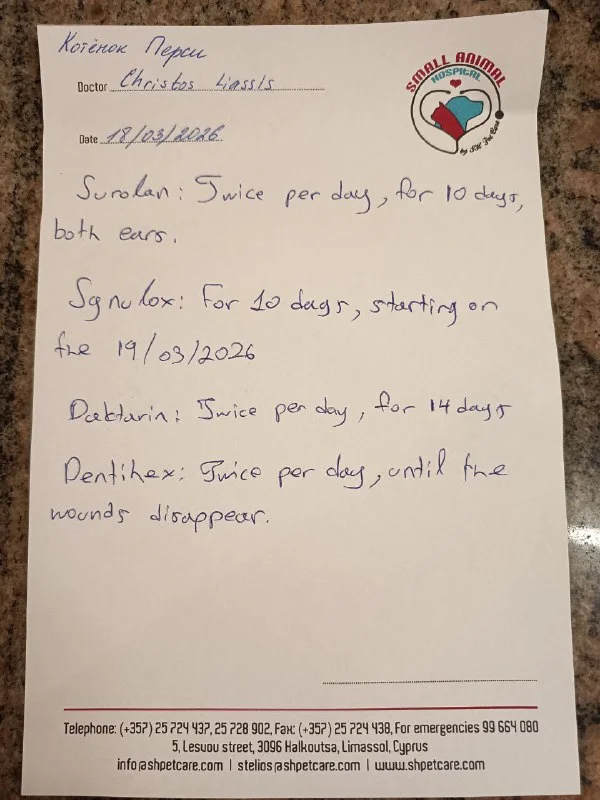 Котёнок Перси
SMALL ANIMAL
HOSPITAL
by SH Pet Care
Doctor Christos Liassis
Date 18/03/2026
Surolan: Twice per day, for 10 days,
both ears.
Synulox: For 10 days, starting on
the 19/03/2026
Daktarin: Twice per day, for 14 days
Dentihex: Twice per day, until the
wounds disappear.
Telephone: (+357) 25 724 437, 25 728 902, Fax: (+357) 25 724 438, For emergencies 99 664 080
5, Lesvou street, 3096 Halkoutsa, Limassol, Cyprus
info@shpetcare.com | stelios@shpetcare.com | www.shpetcare.com